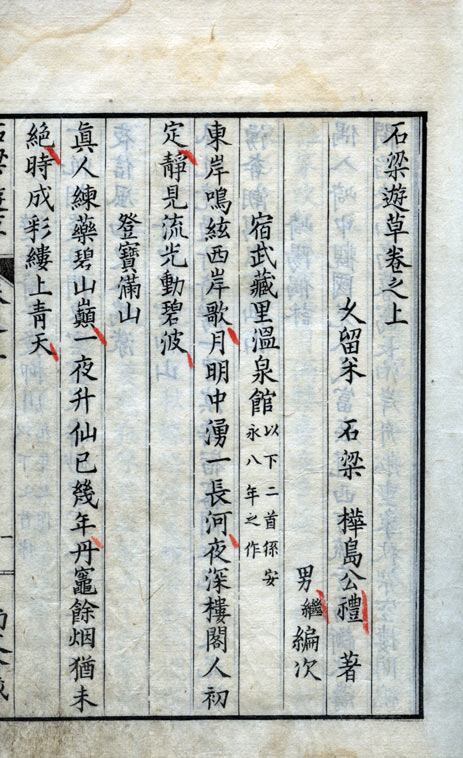 石梁遊草卷之上
久留米 石梁 樺島公禮 著
男繼編次
宿武藏里溫泉館 以下二首係安
永八年之作
東岸鳴絃西岸歌月明中湧一長河夜深樓閣人初
定靜見流光動碧波
登寶滿山
眞人練藥碧山巓一夜升仙已幾年丹竈餘烟猶未
絕時成彩縷上青天